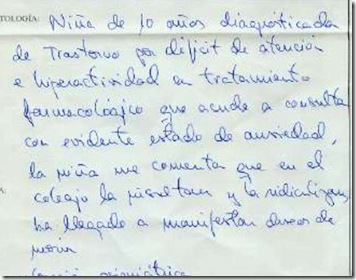 TOLOGÍA: Niña de 10 años diagnosticada
de Trastorno por déficit de atención
e hiperactividad en tratamiento
farmacológico que acude a consulta
con evidente estado de ansiedad,
la niña me comenta que en el
colegio la insultan y la ridiculizan,
A:
ha llegado a manifestar deseos de
morir